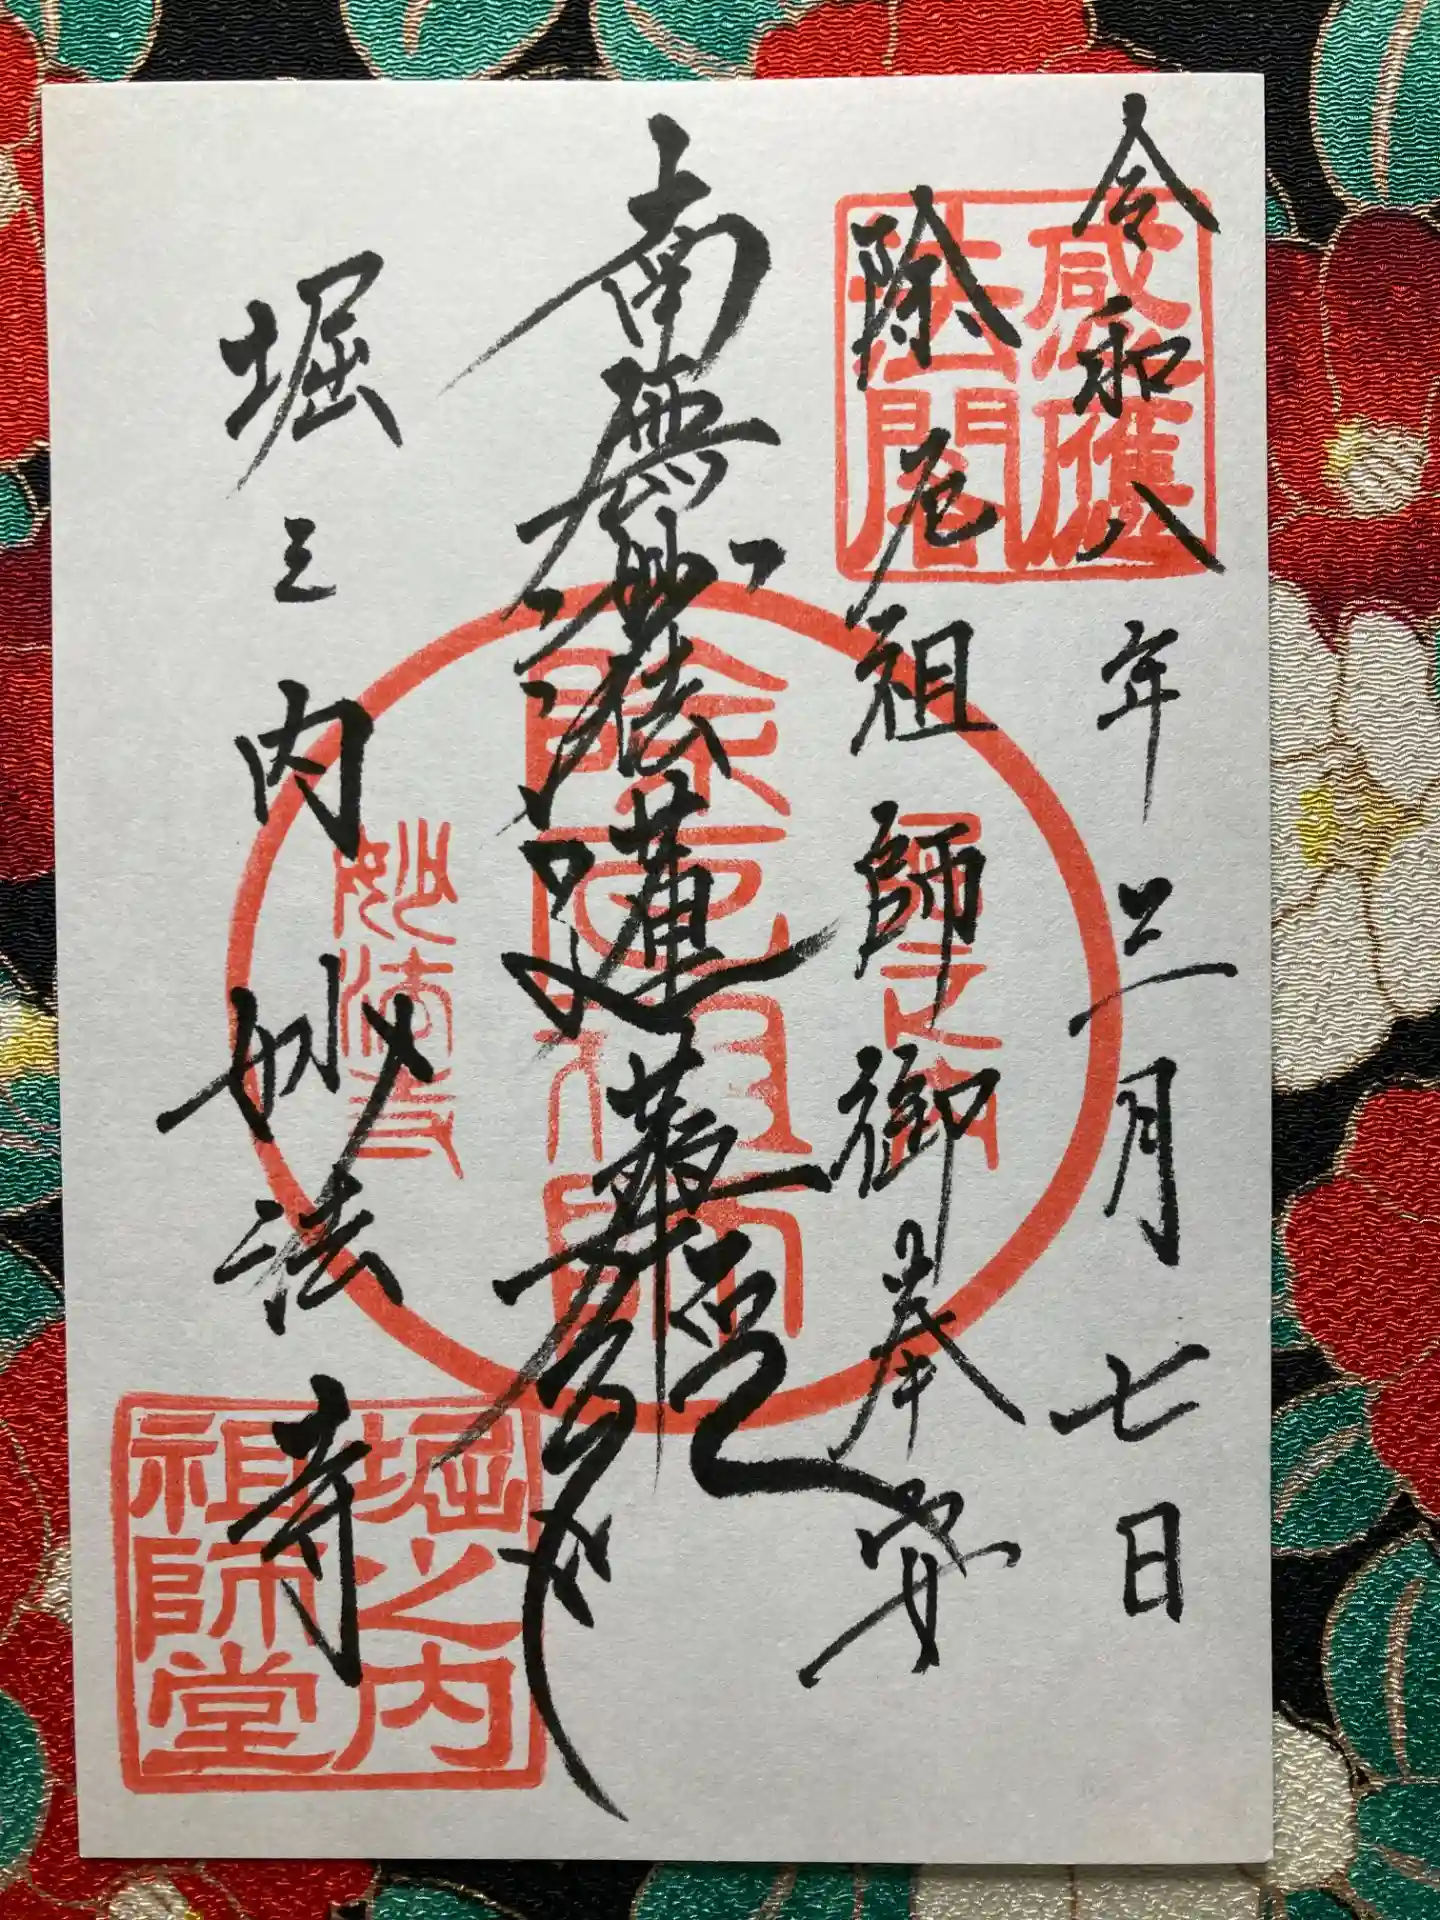 令和八年三月七日
除厄祖師御奉安
南無妙法蓮華経
堀之内妙法寺
感應
法閣
堀之内
除厄祖師
妙法寺
堀之内
祖師堂